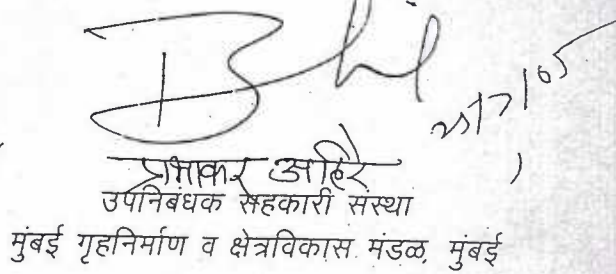 प्रभाकर अहिरे
उपनिबंधक सहकारी संस्था
मुंबई गृहनिर्माण व क्षेत्रविकास मंडळ, मुंबई